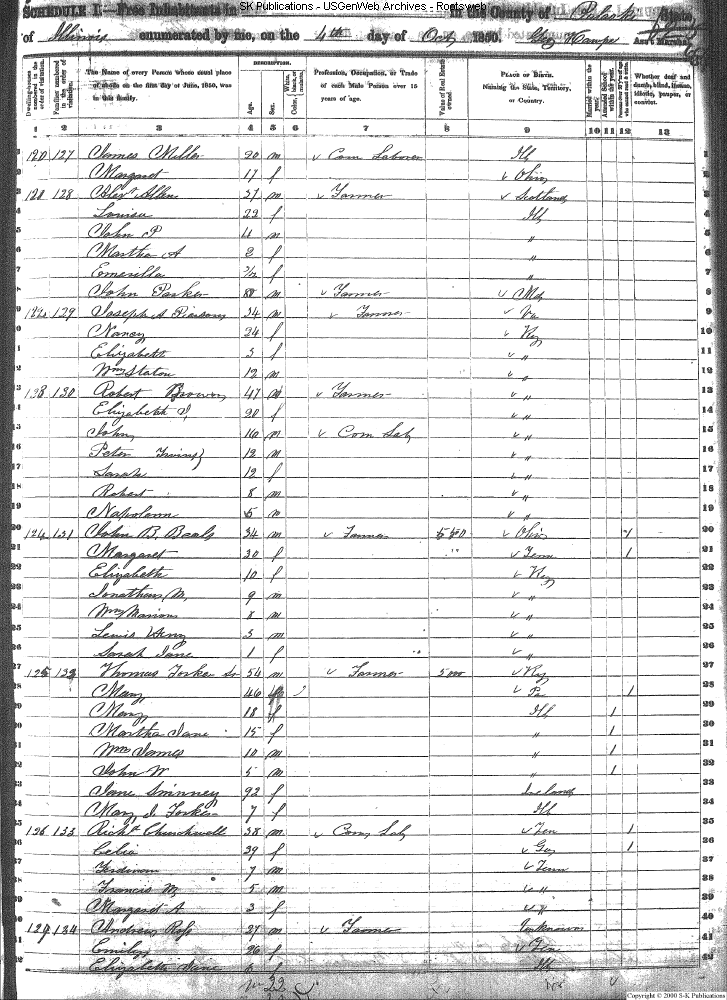 SK Publications - USGenWeb Archives - Rootsweb
SCHEDULE I.—Free Inhabitants in in the County of Pulaski State
of Illinois enumerated by me, on the 4th day of Oct, 1850. Ass't Marshal.
Dwelling-houses numbered in the order of visitation. Families numbered in the order of visitation. The Name of every Person whose usual place of abode on the first day of June, 1850, was in this family. DESCRIPTION. Age. Sex. White, black, or mulatto. Color. Profession, Occupation, or Trade of each Male Person over 15 years of age. Value of Real Estate owned. PLACE OF BIRTH. Naming the State, Territory, or Country. Married within the year. Attended School within the year. Whether deaf and dumb, blind, insane, idiotic, pauper, or convict.
1 2 3 4 5 6 7 8 9 10 11 12 13
120 127 James Miller 20 m Com Laborer Ill
Margaret 17 f Ohio
128 Alexr Allen 37 m Farmer Scotland
Louisa 22 f Ill
John P 4 m "
Martha A 2 f "
Emerilla 3/12 f "
John Parker m Farmer
129 Joseph A 34 m Farmer Va
Nancy 24 f Ky
Elizabeth 3 f "
Wm Staton 12 m "
130 Robert 47 m Farmer "
Elizabeth J, 20 f "
John 16 m Com Lab "
Peter 12 m "
Sarah 12 f "
Robert 8 m "
Napoleon 5 m "
124 131 John B. Beals 34 m Farmer 500 Ohio 1
Margaret 30 f " Tenn 1
Elizabeth 10 f Ky
Jonathan M, 9 m "
Wm Marion 8 m "
Lewis Henry 3 m "
Sarah Jane 1 f "
125 132 Thomas Forker Sr 54 m Farmer Ky
Mary 46 Pa 1
Mary 18 f Ill 1
Martha Jane 15 f " 1
Wm James 10 m " 1
John W 5 m " 1
Jane 92 f Ireland
Mary J. Forker 7 f Ill
126 133 Richd Churchwell 38 m Com Lab Ten 1
Celia 39 f 1
7 m Tenn
Francis M, 5 m "
Margaret A 3 f "
127 134 Andrew Ross 27 m Farmer Unknown
Emily 26 f Ten
Elizabeth Jane f Ill
22
Copyright © 2000 S-K Publications